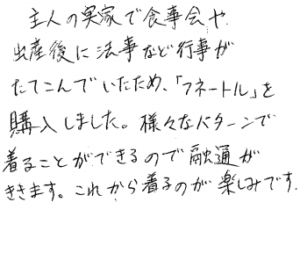 主人の実家で食事会や
出産後に法事など行事が
たてこんでいたため、「フネートル」を
購入しました。様々なパターンで
着ることができるので融通が
ききます。これから着るのが楽しみです。